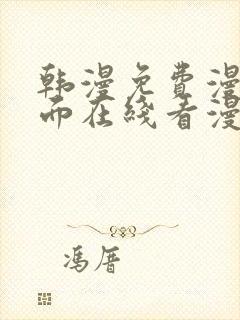 韩漫免费漫
而在线看漫
冯厝